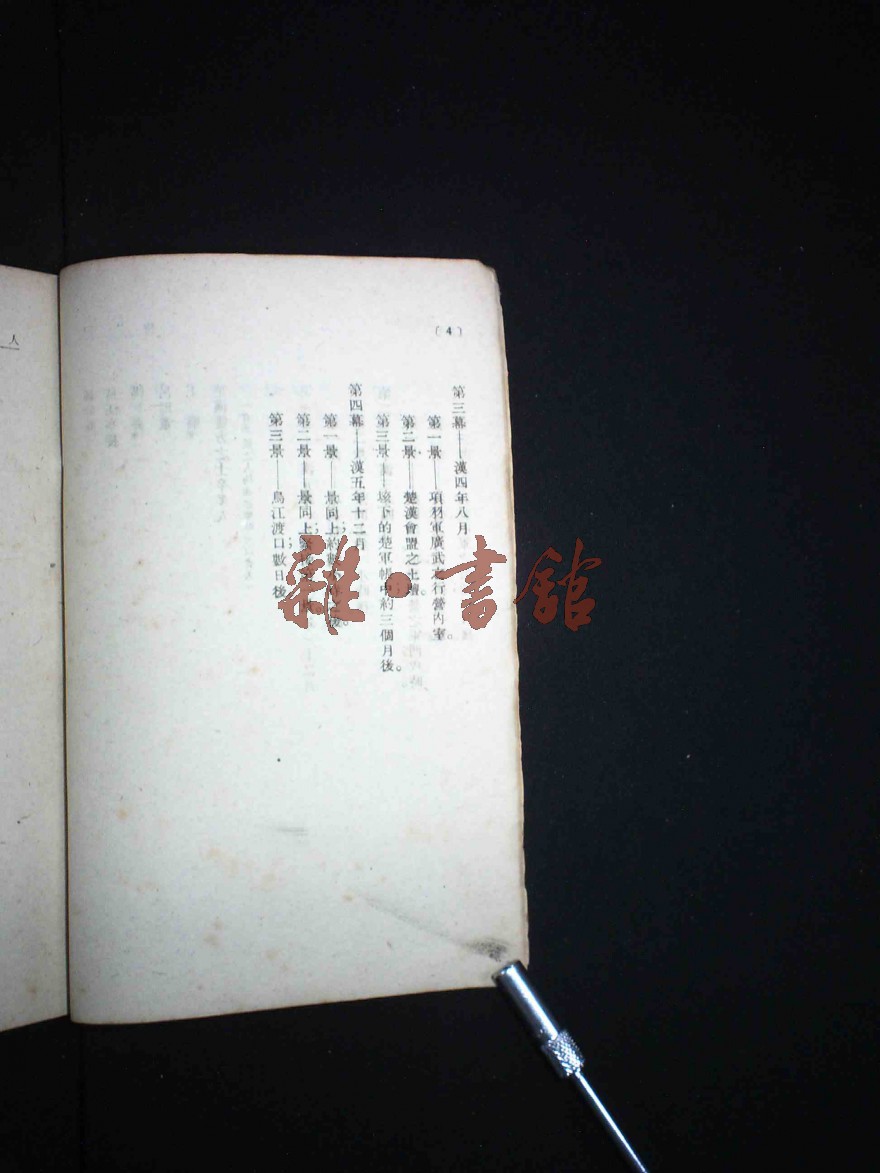 〔4〕
第三幕——漢四年八月
第一景——項羽軍廣武之行營內室。
第二景——楚漢會盟之土壇。
第三景——垓下的楚軍帳中約三個月後。
第四幕——漢五年十二月
第一景——景同上;約數
第二景——景同上;
第三景——烏江渡口;數日後。
人
雜·書館